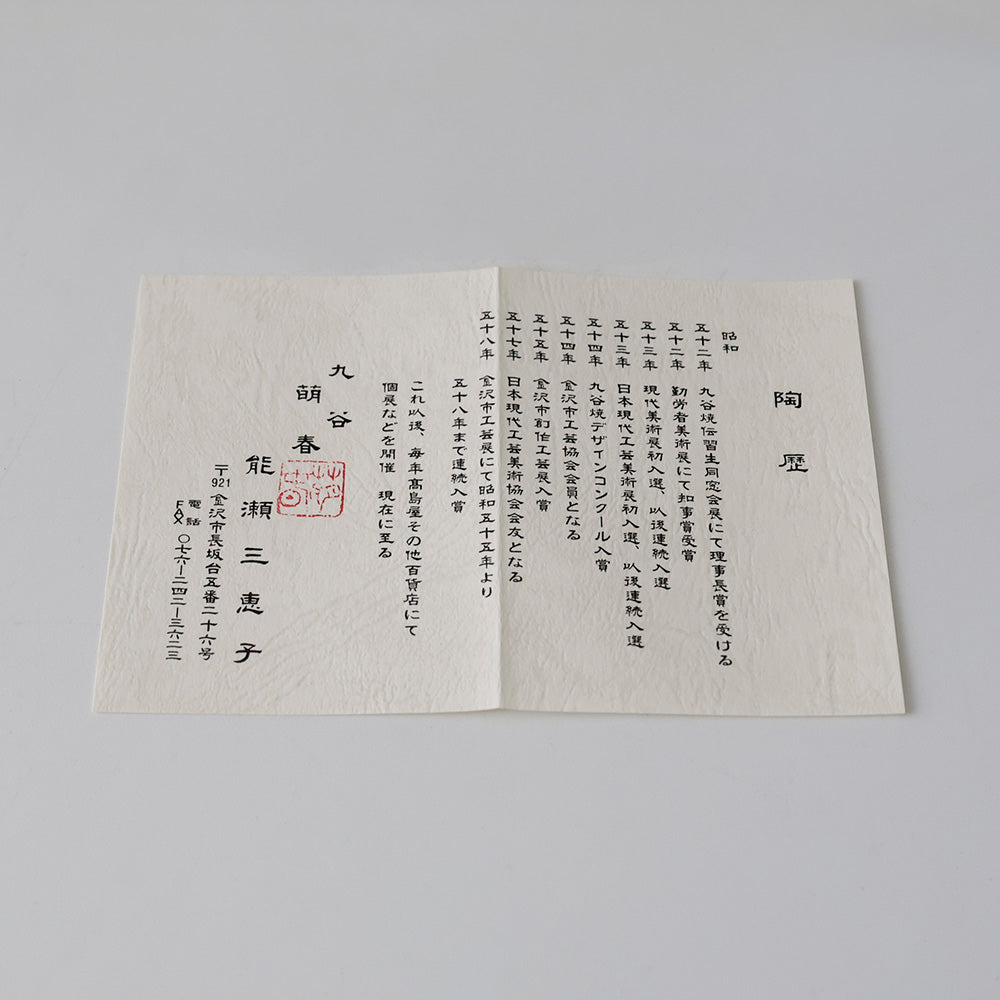 陶歴
昭和
五十二年 九谷焼伝習生同窓会展にて理事長賞を受ける
五十二年 勤労者美術展にて知事賞受賞
五十三年 現代美術展初入選、以後連続入選
五十三年 日本現代工芸美術展初入選、以後連続入選
五十四年 九谷焼デザインコンクール入賞
五十四年 金沢市工芸協会会員となる
五十五年 金沢市創作工芸展入賞
五十七年 日本現代工芸美術協会会友となる
五十八年 金沢市工芸展にて昭和五十五年より
五十八年まで連続入賞
これ以後、毎年髙島屋その他百貨店にて
個展などを開催 現在に至る
九谷
萌春
能瀬三恵子
〒921 金沢市長坂台五番二十六号
電話 FAX 〇七六ー二四二ー三六二三